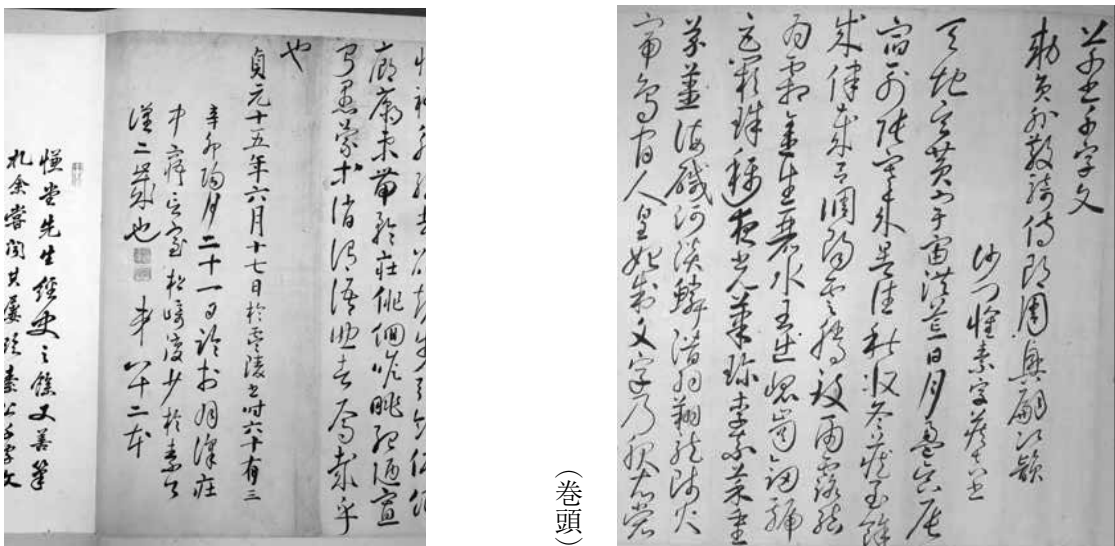 草書千字文
勅員外散騎侍郎周興嗣次韻
沙門懷素字藏真書
天地玄黃宇宙洪荒日月盈昃辰
宿列張寒來暑往秋收冬藏閏餘
成律呂調陽雲騰致雨露結
為霜金生麗水玉出崑崗劒號
巨闕珠稱夜光菓珍李柰菜重
芥薑海鹹河淡鱗潛羽翔龍師火
帝鳥官人皇始制文字乃服衣裳
(巻頭)
廊廟束帶矜莊徘徊瞻眺孤陋寡
聞愚蒙等誚謂語助者焉哉乎
也
貞元十五年六月十七日於零陵書時六十有三
辛卯陽月二十一日
松崎復少於素公
僅二歲也 第八十二本
慊堂先生經史之餘又善筆
札余嘗聞其屢臨素公千字文